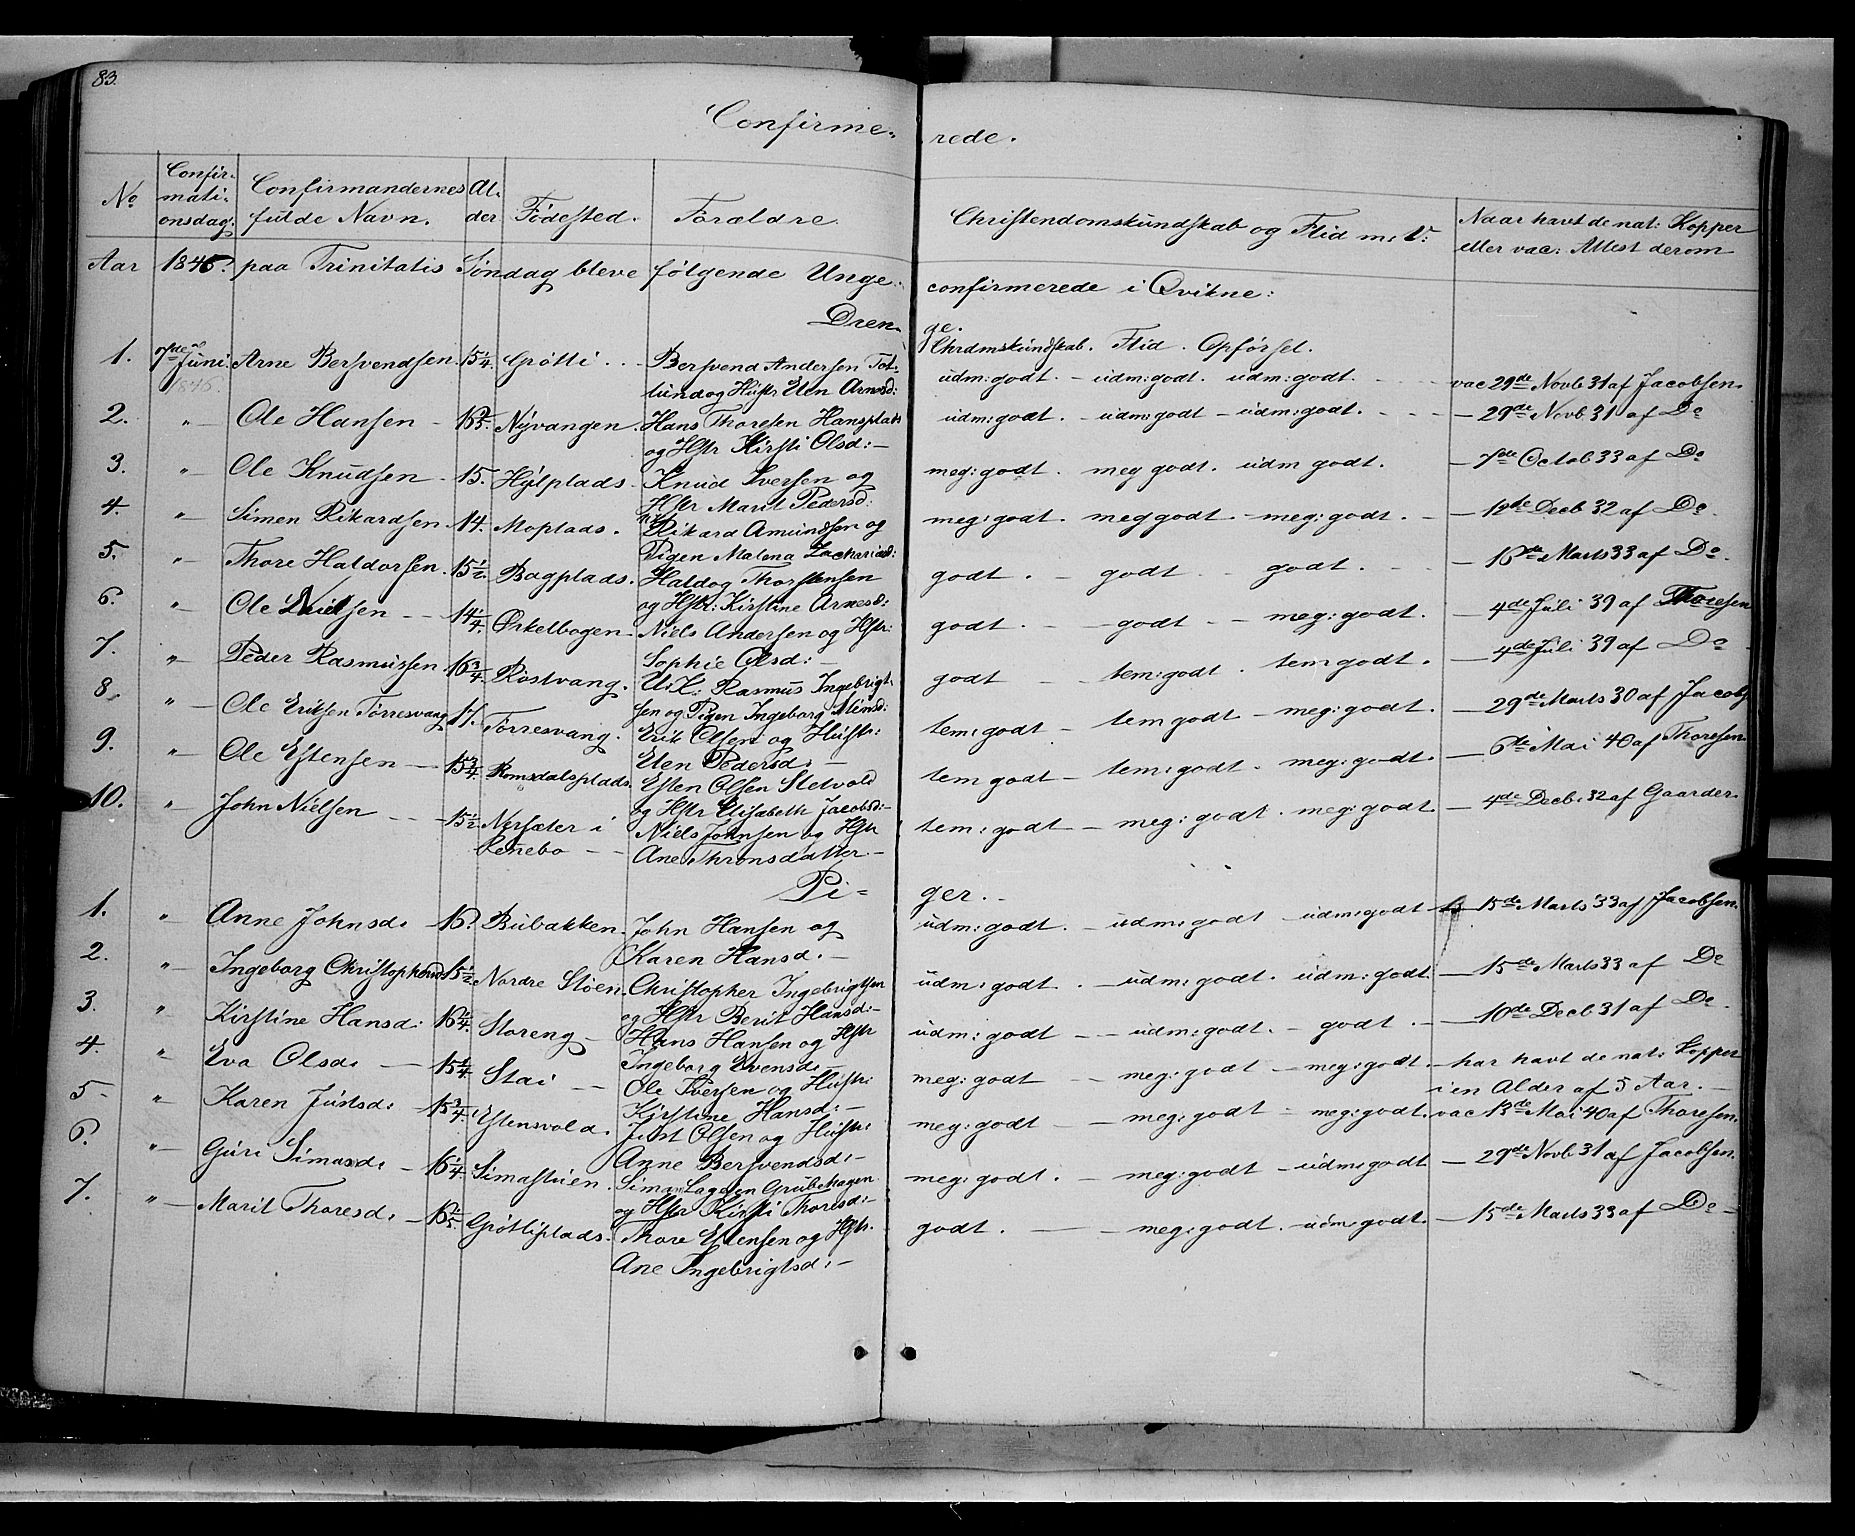 83.
Confirme= rede.
No Confir- mati- onsdag: Confirmandernes fulde Navn. Al- der Fødested. Forældre. Christendomskundskab og Flid m: V: Naar havt de nat: Kopper eller vac: Attest derom
Aar 1846. paa Trinitatis Søndag bleve følgende Unge confirmerede i Qvikne:
Dren- ge.
Chrdmskundskab. Flid. Opførsel.
1. 7de Juni. Arne Bersvendsen. 15 1/4. Grøtti . . Bersvend Andersen Tot-
1846. lund og Hustr Elen Arnesd: udm: godt. – udm: godt. udm: godt. vac 29de Novb 31 af Jacobsen.
2. " Ole Hansen Nyvangen. Hans Thoresen Hansplads udm: godt. – udm: godt – udm: godt. – 29de Novb 31 af Do
og Hstr Kirsti Olsd: –
3. " Ole Knudsen 15. Hylplads. Knud Iversen og meg: godt. meg godt. udm godt. – 7de Octob 33 af Do
Hstr Marit Pedersd:
4. " Simen Rikardsen. 14. Moplads. Rikard Amundsen og meg: godt. meg godt – meg: godt. – 12te Decb 32 af Do.
Pigen Malena Zachariasd:
5. " Thore Haldorsen. 15 1/2. Bagplads. Haldog Thorstensen godt. – godt – godt. – 16de Marts 33 af Do.
og Hstr: Kirstine Arnesd:
6. " Ole Nielsen 14 1/4. Ørkelbogen Niels Andersen og Hstr: godt. – godt – meg: godt. – 4de Juli 39 af Thoresen
Sophie Olsd: –
7. " Peder Rasmussen. 16 3/4. Røstvang. U: K: Rasmus Ingebrigt- godt – tem: godt. tem: godt. – 4de Juli 39 af Do
sen og Pigen Ingeborg
8. " Ole Eriksen Torresvang. 17. Torresvang. Erik Olsen og Hustr: tem: godt – tem godt – meg: godt. – 29de Marts 30 af Jacobs
Elen Pedersd: –
9. " Ole Estensen 15 3/4. Romsdalsplads. Esten Olsen Sletvold tem godt – tem: godt. meg: godt. – 6te Mai 40 af Thoresen.
og Hstr Elisabeth Jacobsd: –
10. " John Nielsen 15 1/2. Nysæter i Niels Johnsen og Hstr tem: godt – meg: godt. meg: godt. – 4de Decb. 32 af Gaarder.
Renebo Ane Thronsdatter –
Pi= ger. –
1. " Anne Johnsd: 16. Bubakken. John Hansen og udm: godt. – udm: godt – udm: godt – 15de Marts 33 af Jacobsen.
Karen Hansd: –
2. " Ingeborg Christophersd 15 1/2. Nordre Støen. Christopher Ingebrigtsen udm: godt. – udm: godt. udm: godt. – 15de Marts 33 af Do
og Hstr Berit Hansd: –
3. " Kirstine Hansd: Storeng Hans Hansen og Hstr udm: godt – udm: godt. – godt. – 10de Decb 31 af Do.
Ingeborg Evensd: –
4. " Eva Olsd: 15 1/4. Stai Ole Iversen og Hustr: meg: godt – meg: godt – meg: godt. – har havt de nat: Kopper
Kirstine Hansd: – i en Alder af 5 Aar. –
5. " Karen Justsd: 15 3/4. Estensvold. Just Olsen og Hustr: meg: godt – meg: godt – meg: godt. vac 13de Mai 40 af Thoresen.
Anne Bersvendsd: –
6. " Guri Simasd: 16 1/4. Simastuen. Siman Lagden Grubehagen meg: godt. – meg: godt – udm: godt – 29de Novb 31 af Jacobsen.
og Hstr Kirsti Thoresd: –
7. " Marit Thoresd: Grøtliplads. Thore Estensen og Hstr. godt. – meg: godt. udm: godt. – 15de Marts 33 af Do –
Ane Ingebrigtsd: –